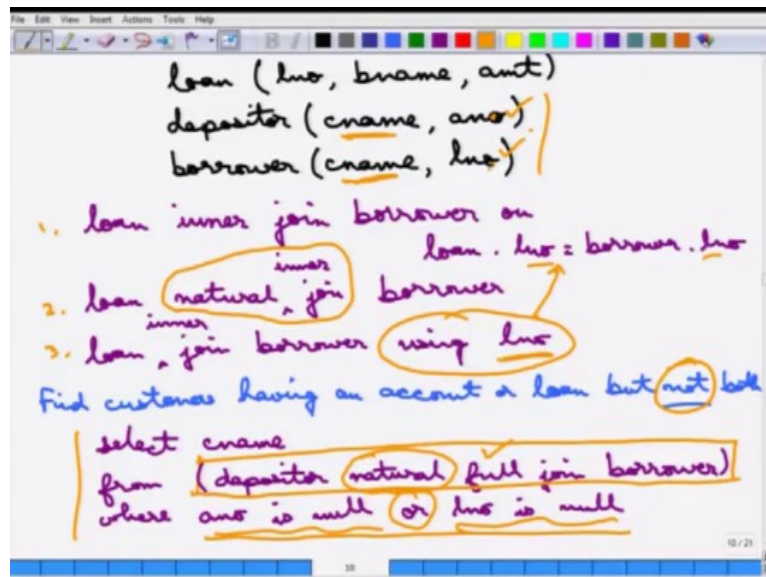 File Edit View Insert Actions Tools Help
loan (lno, bname, amt)
depositor (cname, ano)
borrower (cname, lno)
1. loan inner join borrower on
loan . lno = borrower . lno
2. loan natural inner join borrower
3. loan inner join borrower using lno
Find customers having an account or loan but not both
select cname
from (depositor natural full join borrower)
where ano is null or lno is null
10 / 21